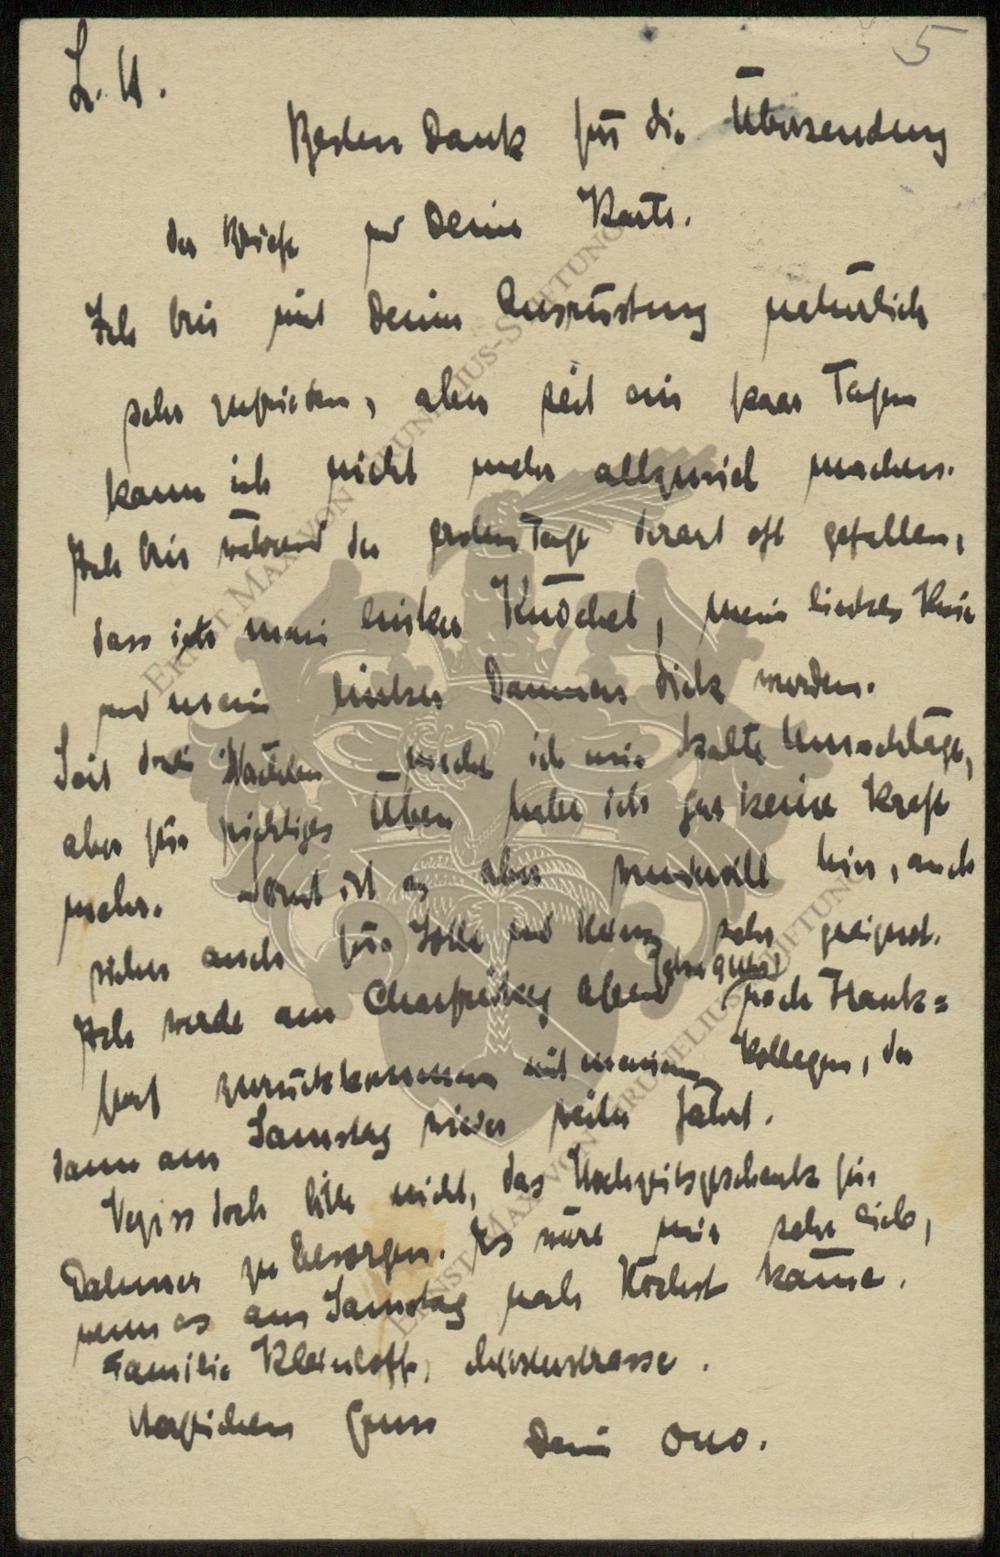 5
L. U.
Besten Dank für die Übersendung
der Briefe und Deine Karte.
Ich bin mit Deiner Ausrüstung natürlich
sehr zufrieden, aber seit ein paar Tagen
kann ich nicht mehr allzuviel machen.
Ich bin während der ersten Tage derart oft gefallen,
dass mein linker Knöchel, mein linkes Knie
und mein linker Daumen dick wurden.
Seit drei Nächten mache ich mir kalte Umschläge,
aber für richtiges Üben habe ich gar keine Kraft
mehr. Sonst ist es aber hier, auch
sicher auch für und sehr geeignet.
Ich werde am Charfreitag Abend nach Frank=
furt zurückkommen mit meinem Kollegen, der
dann am Samstag wieder weiter fährt.
Vergiss doch bitte nicht, das Hochzeitsgeschenk für
Dahmer zu besorgen. Es wäre mir sehr lieb,
wenn es am Samstag nach Höchst käme.
Familie
Herzlichen Gruss
Dein Otto.
ERNST MAX VON GRUNELIUS-STIFTUNG
ERNST MAX VON GRUNELIUS-STIFTUNG